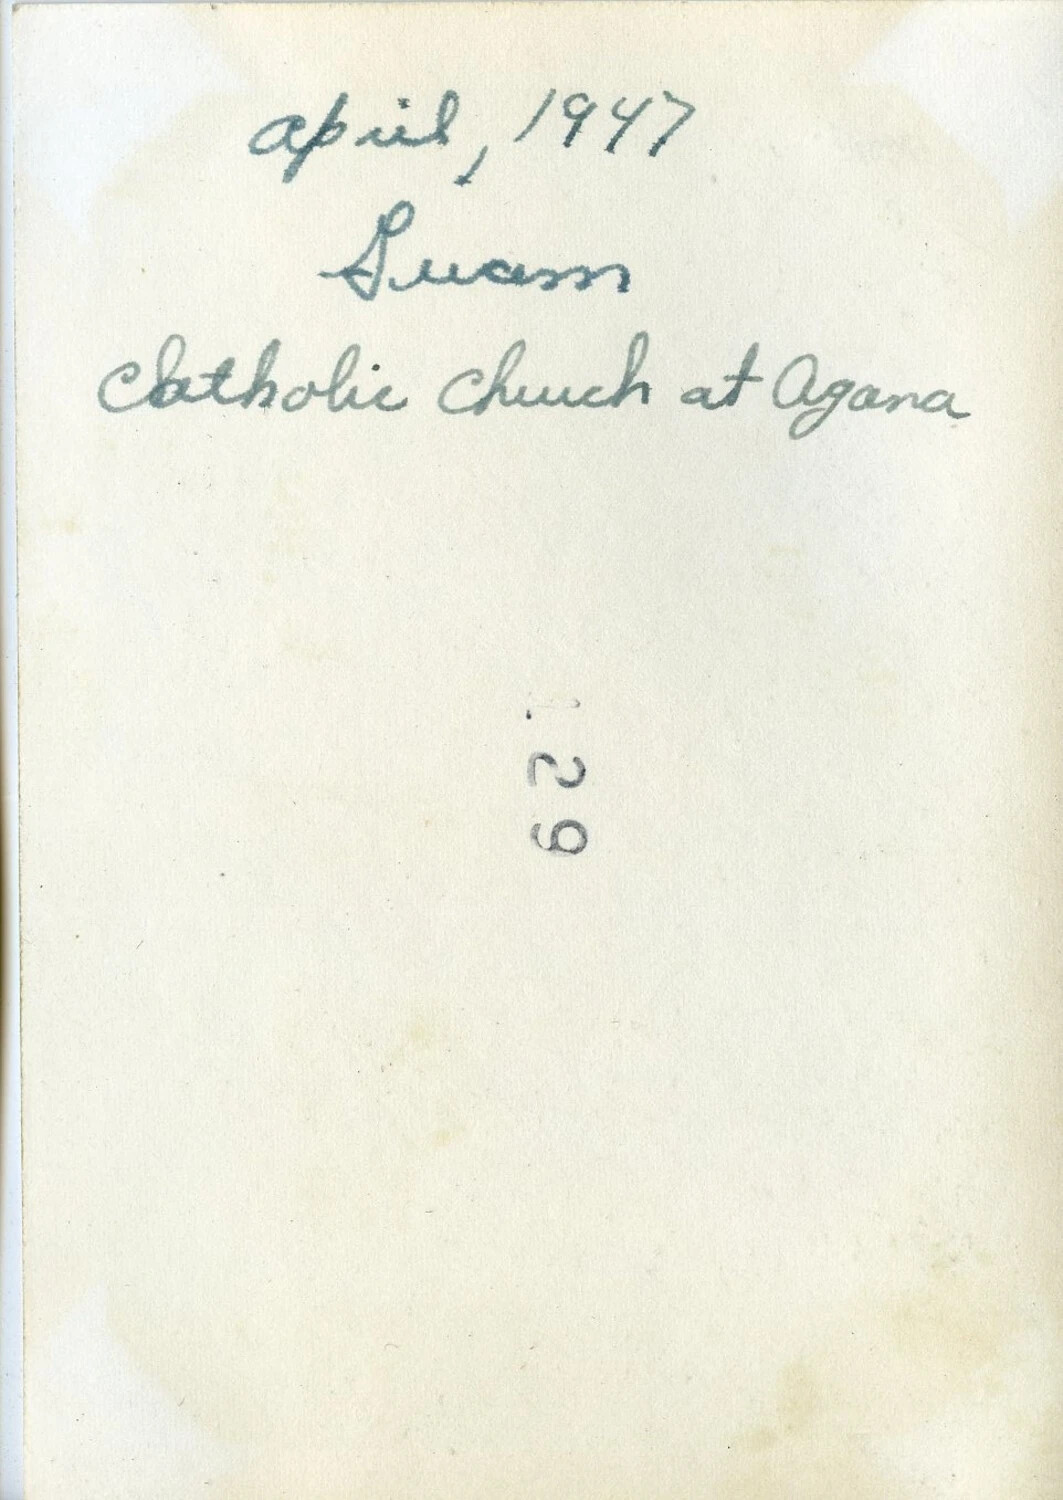 April, 1947
Guam
Catholic Church at Agana
129